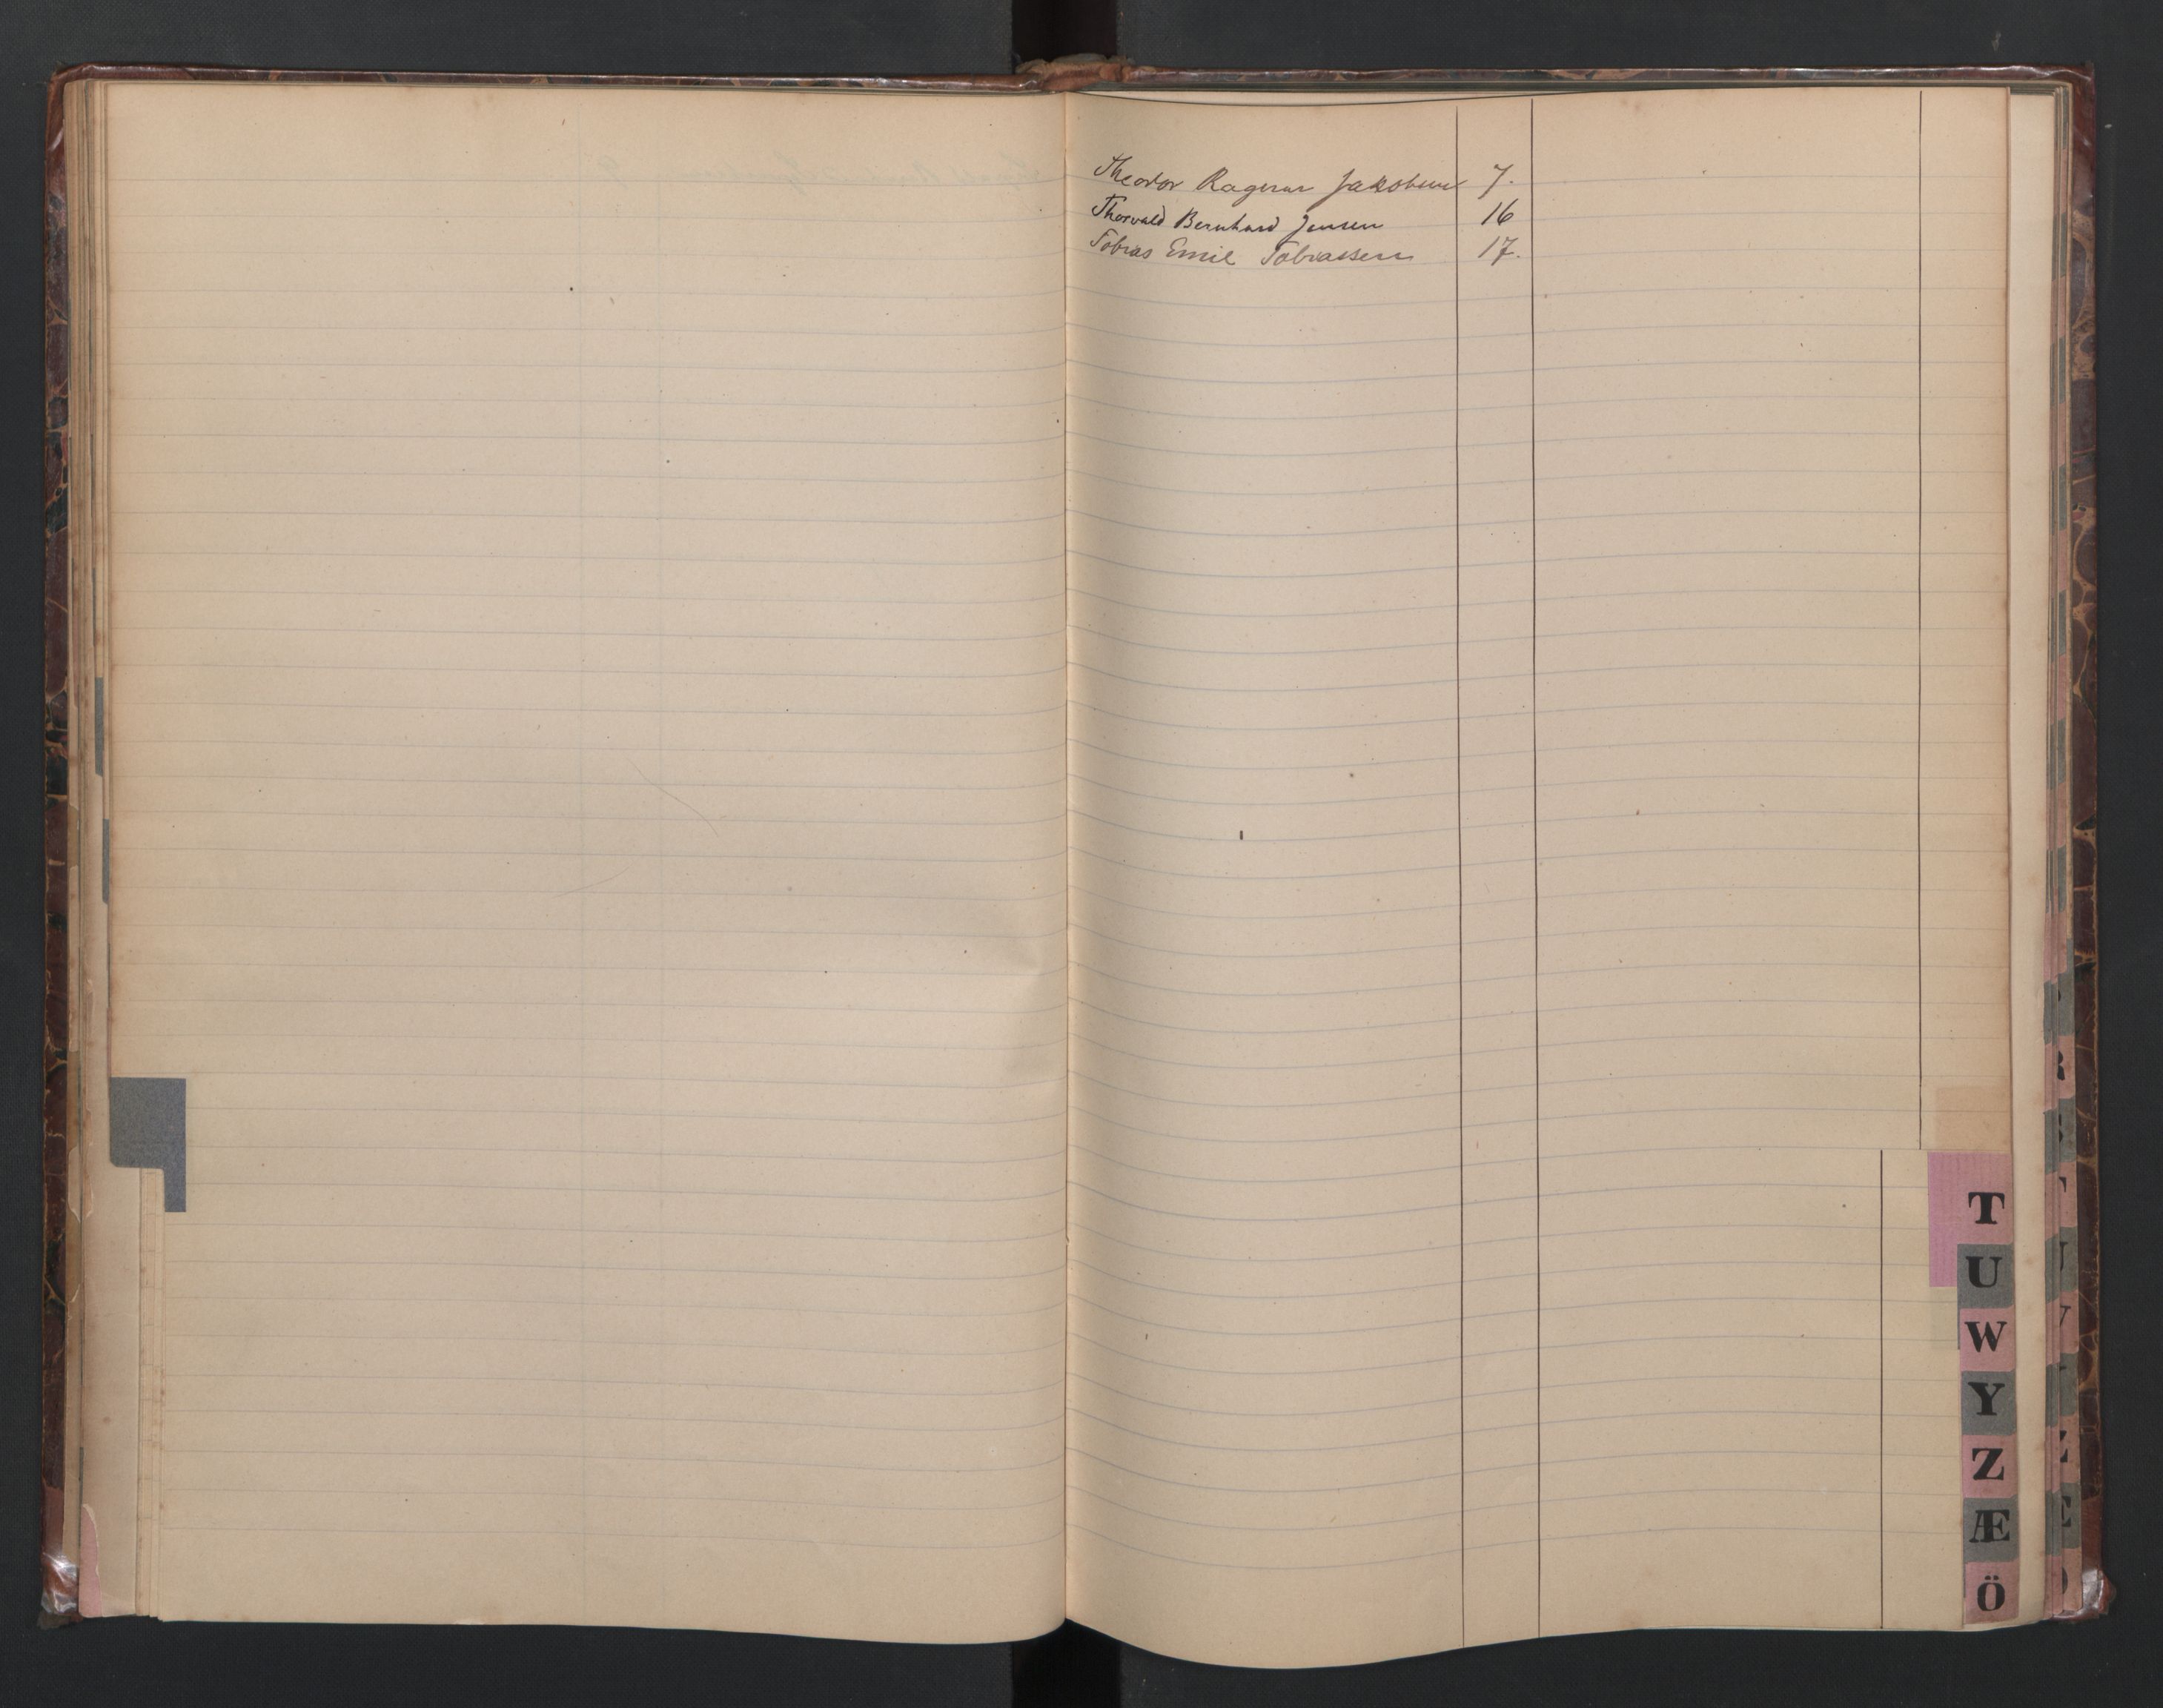 Theodor Ragnar Jakobsen 7.
Thorvald Bernhard Jensen 16
Tobias Emil Tobiassen 17.
T
U
W
Y
Z
Æ
Ö